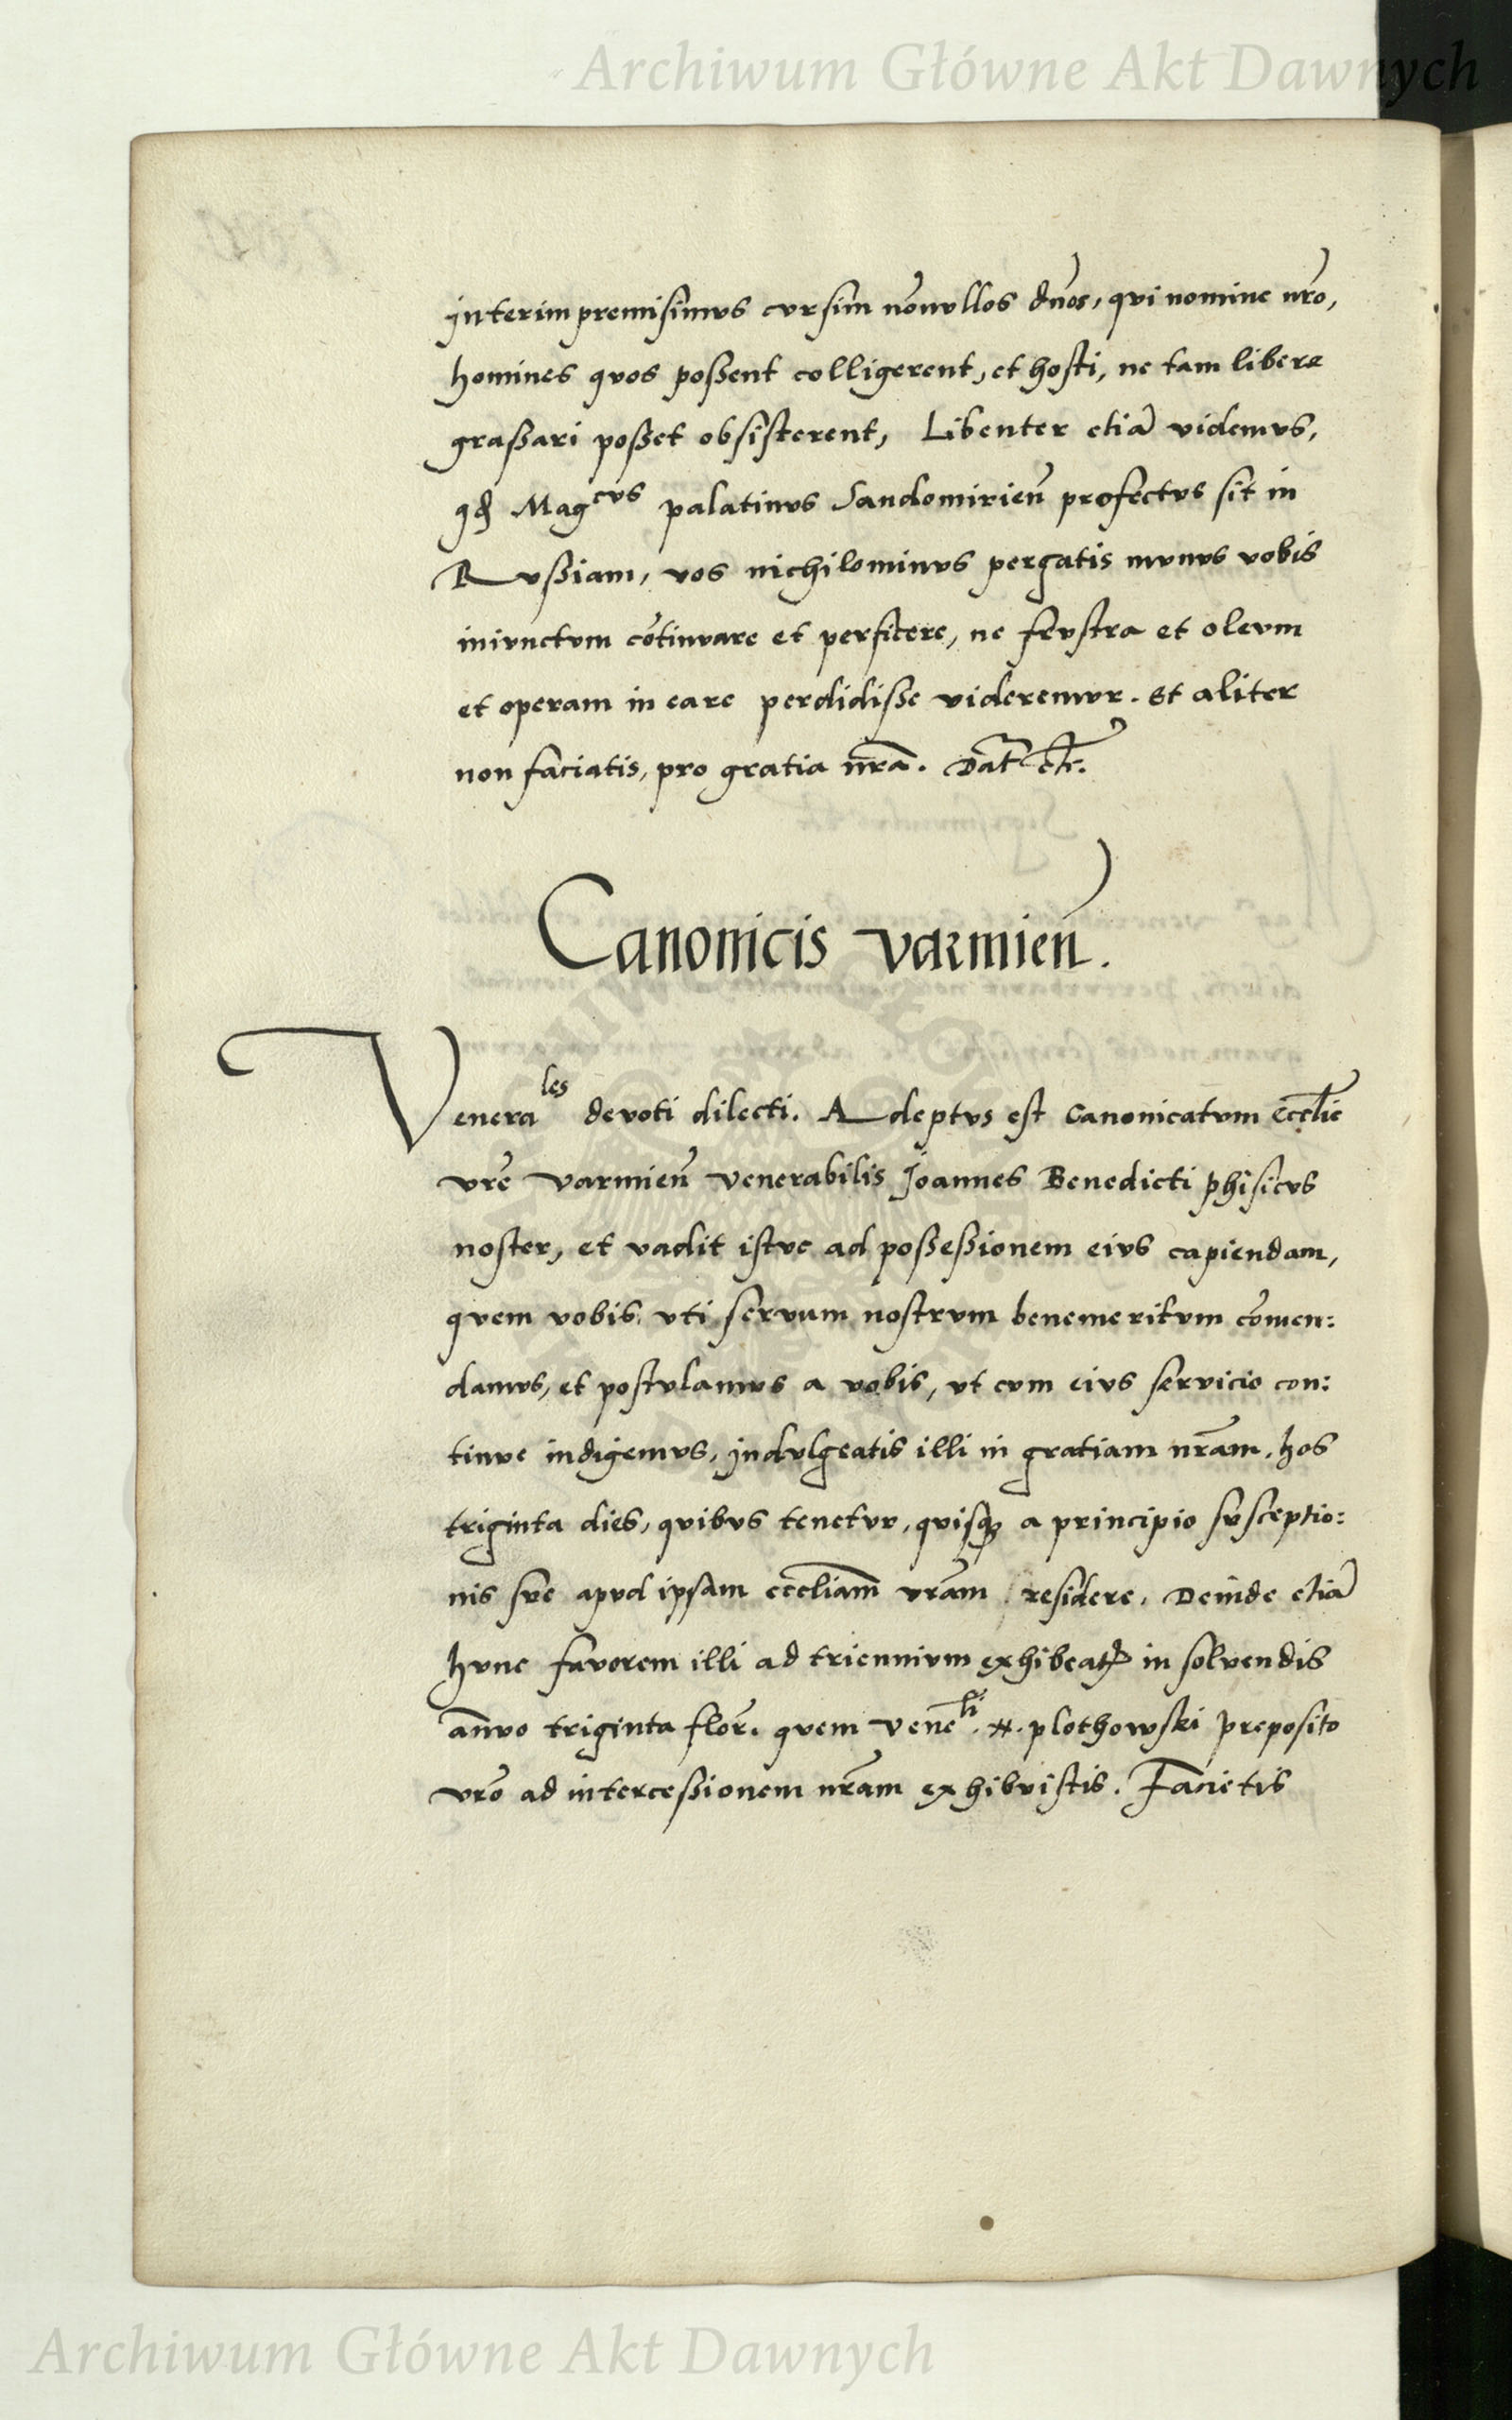 Archiwum Główne Akt Dawnych
interim premisimus cursim nōnullos dn̄os, qui nomine nr̄o,
homines quos possent colligerent, et hosti, ne tam libere
grassari posset obsisterent, Libenter etiā videmus,
qd Magcus palatinus Sandomirien̄ profectus sit in
Russiam, vos nichilominus pergatis munus vobis
iniunctum cōtinuare et perficere, ne frustra et oleum
et operam in eare perdidisse videremur. Et aliter
non faciatis, pro gratia nr̄a. Dat̄ etc.
Canonicis varmien̄.
Venerales devoti dilecti. Adeptus est Canonicatum eccl̄ie
vr̄e varmien̄ venerabilis Joannes Benedicti phisicus
noster, et vadit istuc ad possessionem eius capiendam,
quem vobis uti servum nostrum benemeritum cōmen:
damus, et postulamus a vobis, ut cum eius servicio con:
tinue indigemus, indulgeatis illi in gratiam nr̄am, hos
triginta dies, quibus tenetur, quisqz a principio susceptio:
nis sue apud ipsam eccl̄iam vr̄am residere, Deinde etiā
hunc favorem illi ad triennium exhibeatꝭ in solvendis
an̄uo triginta flor̄. quem veneli. N. plothowski preposito
vr̄o ad intercessionem nr̄am exhibuistis. Facietis
Archiwum Główne Akt Dawnych